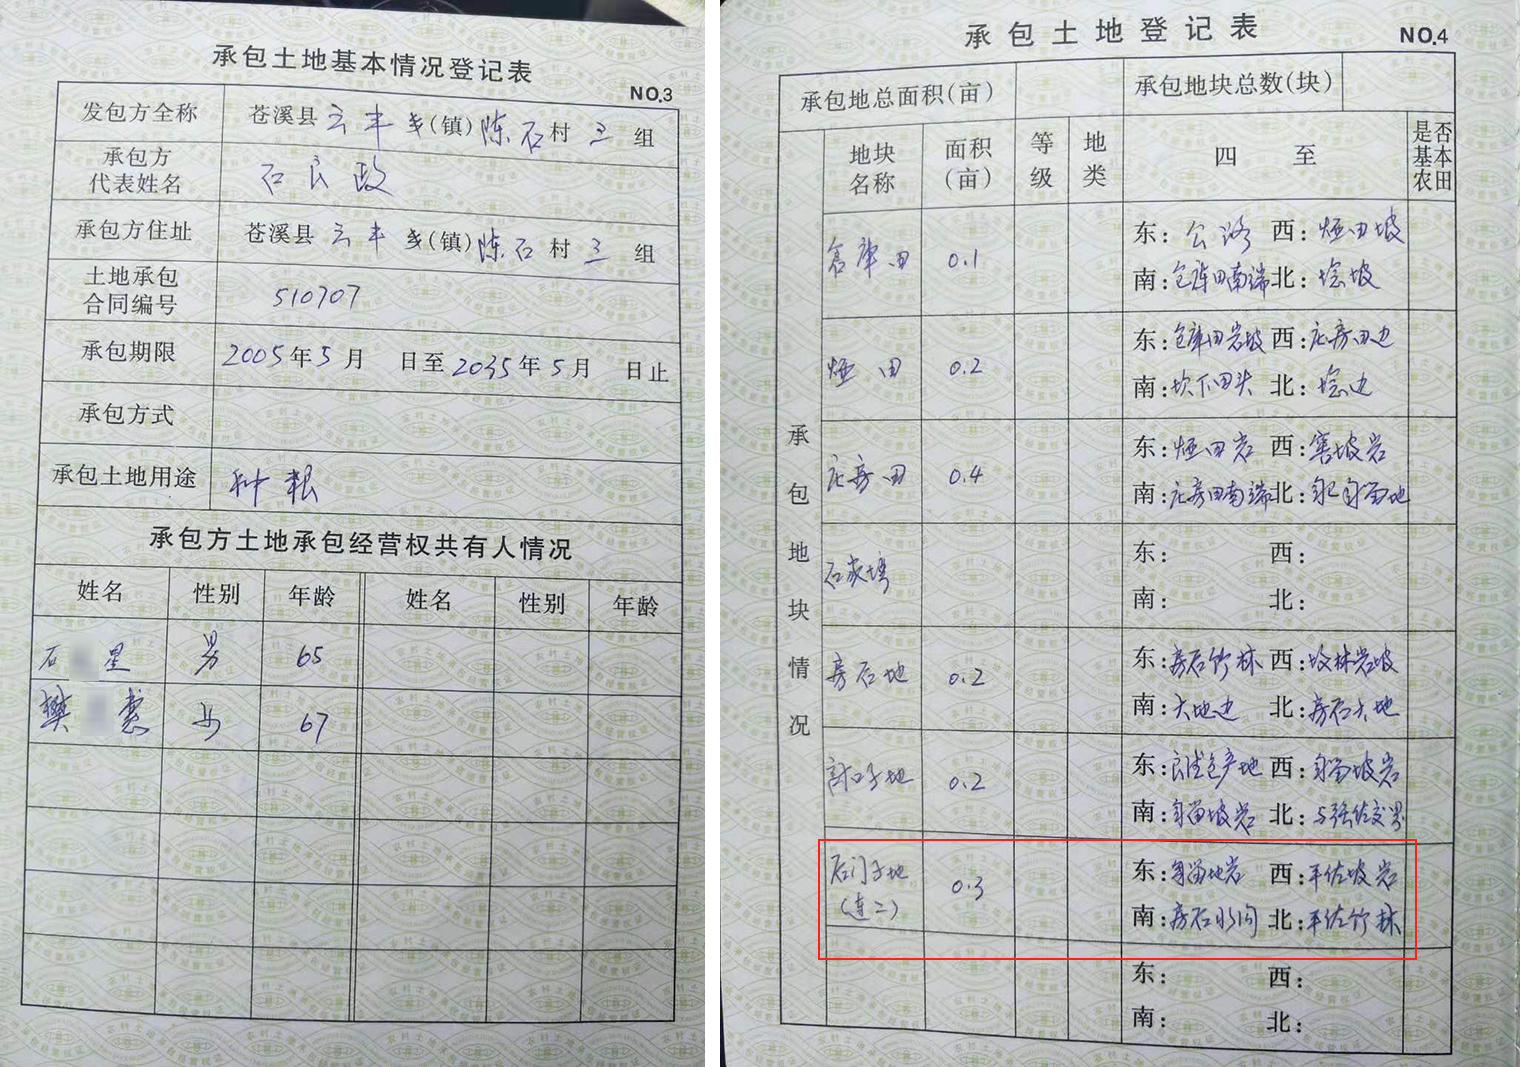 承包土地基本情况登记表
NO.3
发包方全称 苍溪县云丰乡(镇)陈石村三组
承包方代表姓名 石民政
承包方住址 苍溪县云丰乡(镇)陈石村三组
土地承包合同编号 510707
承包期限 2005年5月 日至2035年5月 日止
承包方式
承包土地用途 种粮
承包方土地承包经营权共有人情况
姓名 性别 年龄 姓名 性别 年龄
石 星 男 65
樊 女 67
承包土地登记表
NO.4
承包地总面积(亩) 承包地块总数(块)
承包地块情况
地块名称 面积(亩) 等级 地类 四至 是否基本农田
仓库田 0.1 东:公路 西:烟田坡
南:仓库田南端 北:坡
烟田 0.2 东:仓库田岩坡 西:庄房田边
南:坎下田头 北:边
庄房田 0.4 东:烟田岩 西:坡岩
南:庄房田南端 北:自己自留地
石家塆 东: 西:
南: 北:
房后地 0.2 东:房后竹林 西:坟林岩坡
南:大地边 北:房后大地
子地 0.2 东:产地 西:自留坡岩
南:自留坡岩 北:与强佐交界
后门子地(连二) 0.3 东:自留地岩 西:平佐坡岩
南:房后水沟 北:平佐竹林
东: 西:
南: 北: